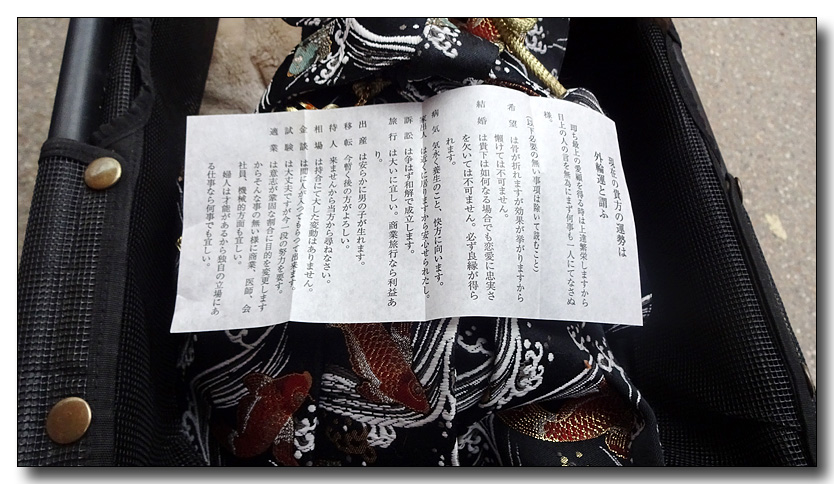 現在の貴方の運勢は
外輪運と謂ふ
即ち最上の愛顧を得る時は上達繁栄しますから
目上の人の言を無為にまず何事も一人にてなさぬ
様。
(以下必要の無い事項は除いて読むこと)
希望 は骨が折れますが効果が挙がりますから
懈けては不可ません。
結婚 は貴下は如何なる場合でも恋愛に忠実さ
を欠いては不可ません。必ず良縁が得ら
れます。
病気 気永く養生のこと、快方に向います。
家出人 は近くに居りますから安心せられたし。
訴訟 は争はず和解で成立します。
旅行 は大いに宜しい。商業旅行なら利益あ
り。
出産 は安らかに男の子が生れます。
移転 今暫く後の方がよろしい。
待人 来ませんから当方から尋ねなさい。
相場 は持合にて大した変動はありません。
金談 は間に人が入つてもらつて出来ます。
試験 は大丈夫ですが今一段の努力を要す。
適業 は意志が鞏固な割合に目的を変更します
からそんな事の無い様に商業、医師、会
社員、機械的方面も宜しい。
婦人は才能があるから独自の立場にあ
る仕事なら何事でも宜しい。